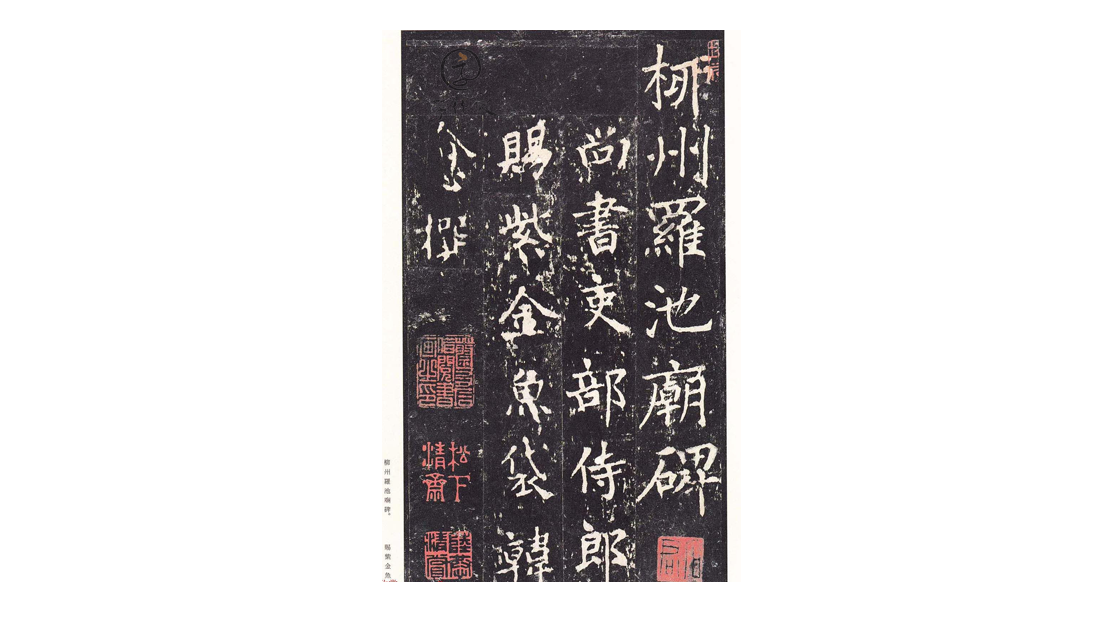 柳州羅池廟碑
尚書吏部侍郎
賜紫金魚袋韓
愈撰
松下
清齋
柳州羅池廟碑。
賜紫金魚